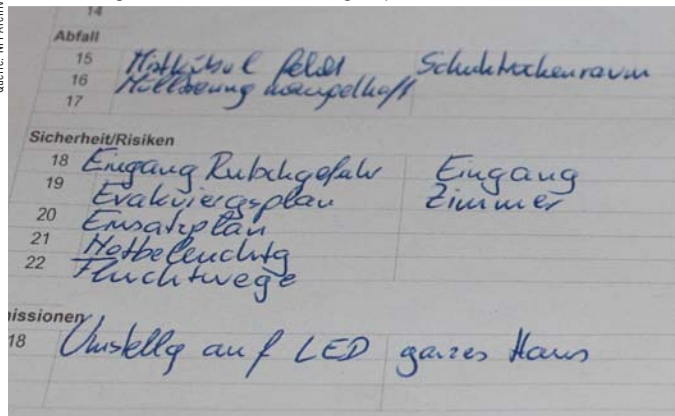 14
Abfall
15 Mistkübel fehlt Schuhtrockenraum
16 Mülltrennung mangelhaft
17
Sicherheit/Risiken
18 Eingang Rutschgefahr Eingang
19 Evakuiergsplan Zimmer
20 Einsatzplan
21 Notbeleuchtg
22 Fluchtwege
issionen
18 Umstellg auf LED ganzes Haus